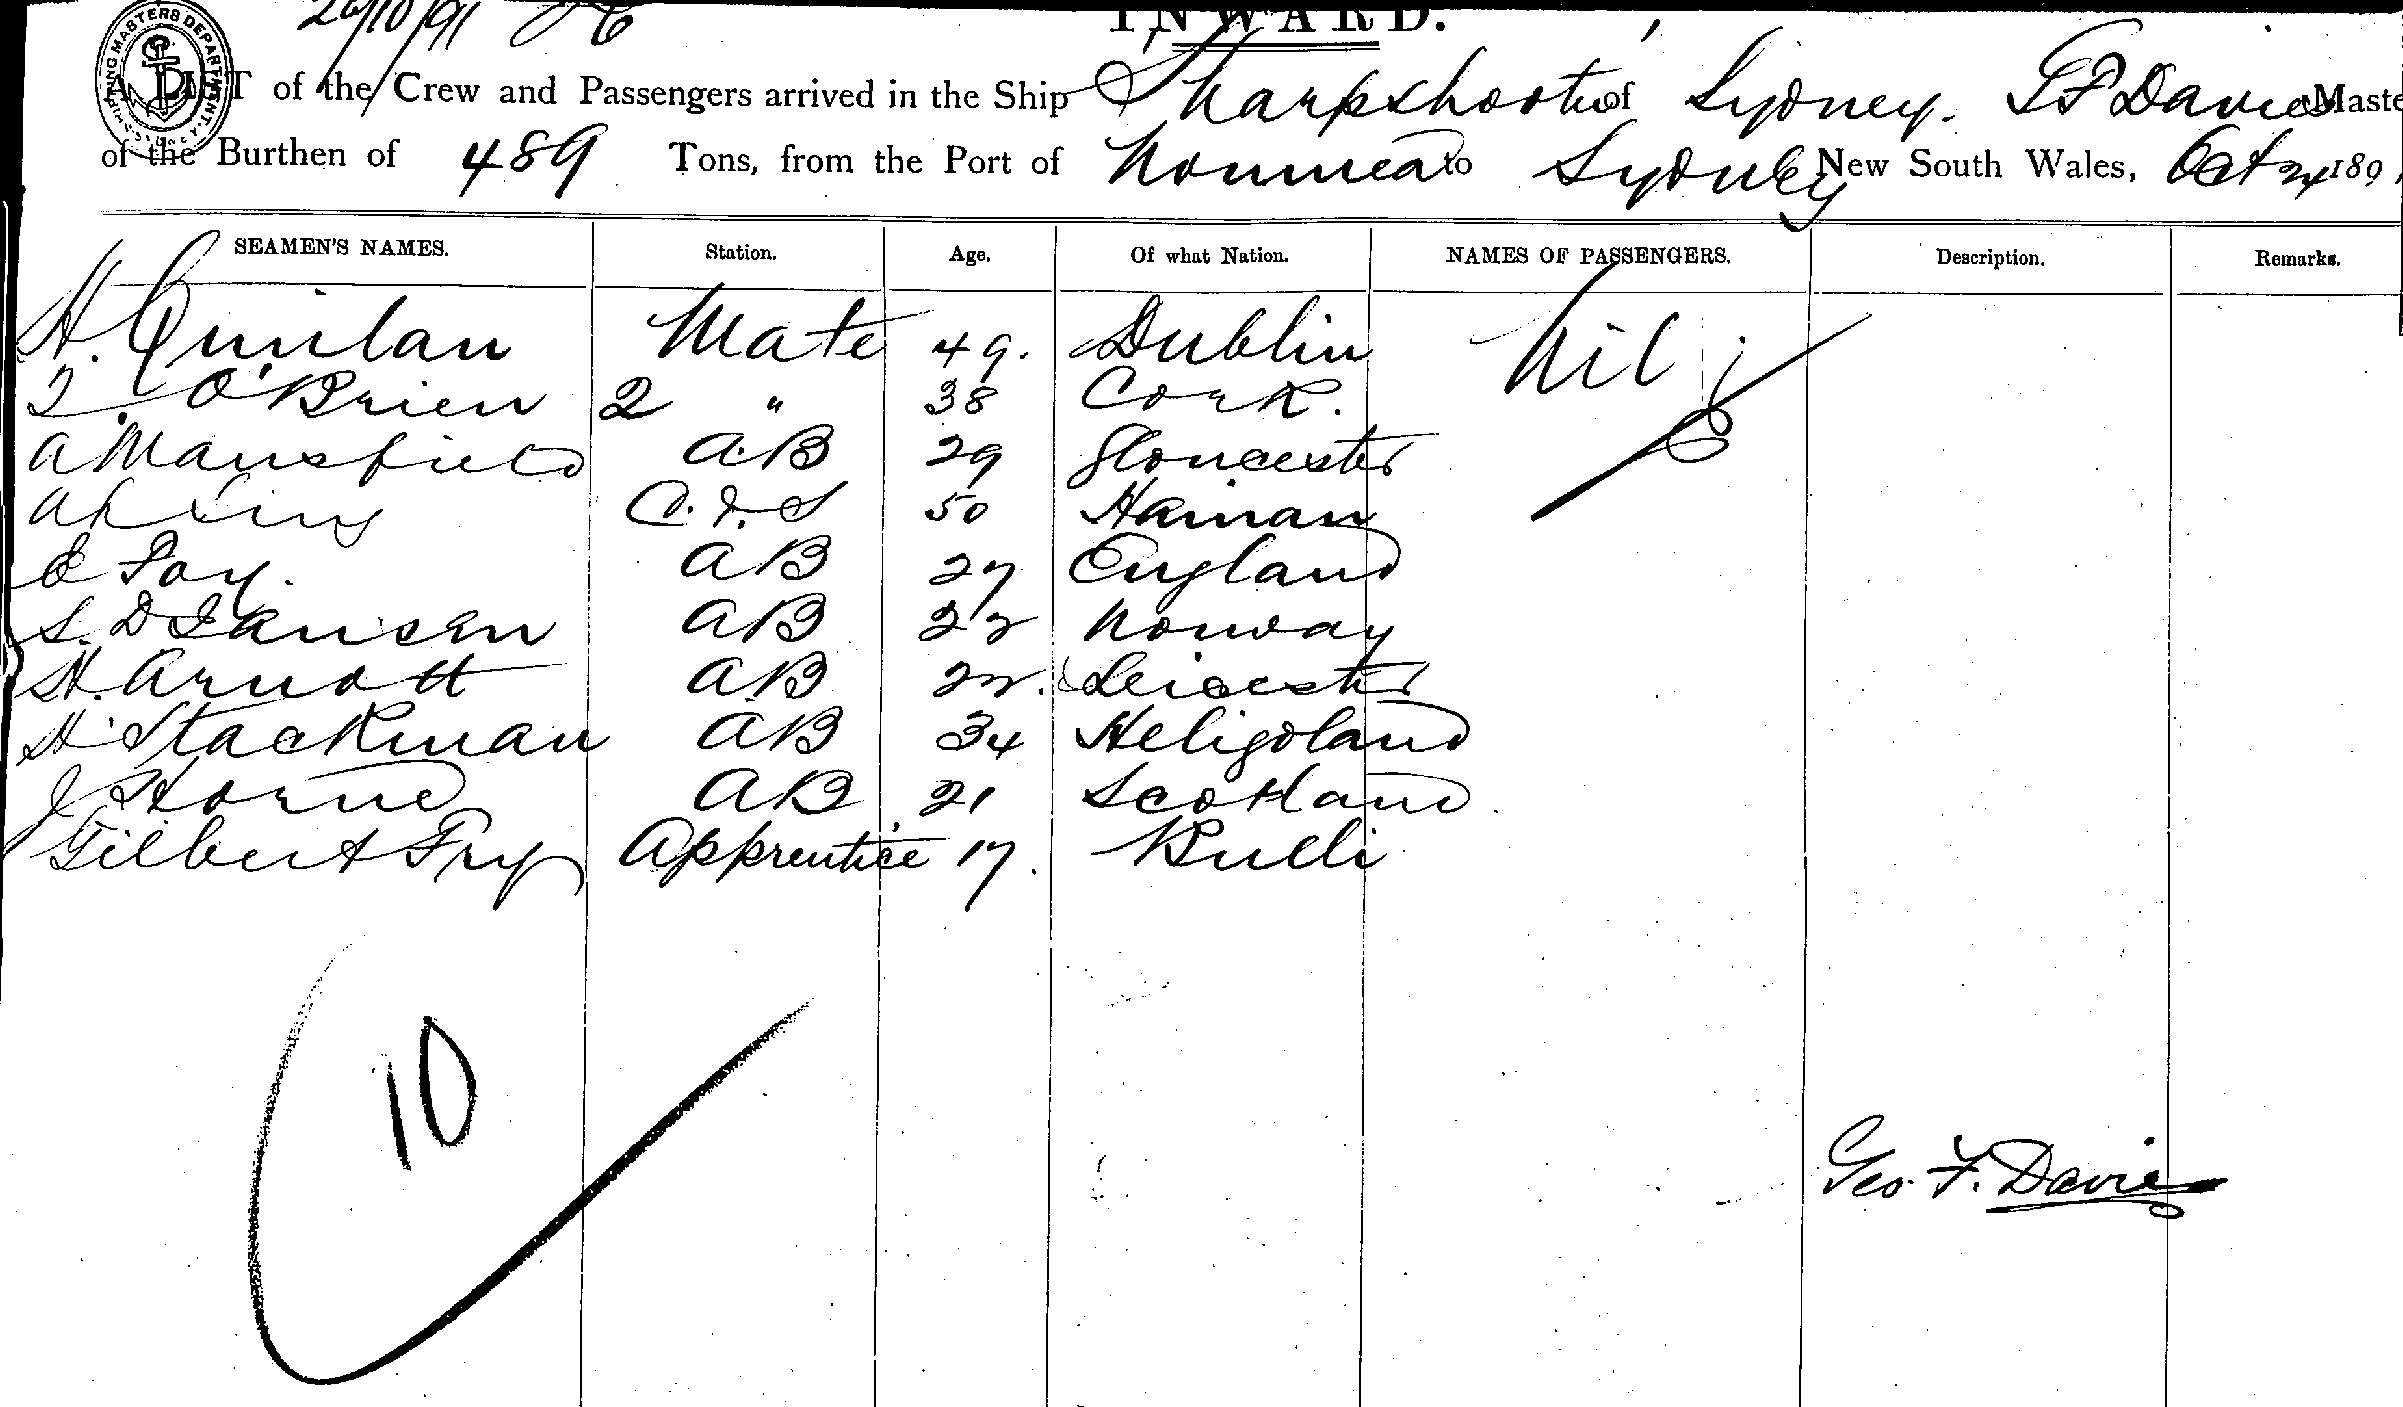 26/10/91
INWARD.
SHIPPING MASTERS DEPARTMENT
A LIST of the Crew and Passengers arrived in the Ship Sharpshooter of Sydney. G F Davies Maste
of the Burthen of 489 Tons, from the Port of Noumea to Sydney New South Wales, Oct 24 1891
SEAMEN'S NAMES. Station. Age. Of what Nation. NAMES OF PASSENGERS. Description. Remarks.
H. Quinlan Mate 49. Dublin Nil
T. O'Brien 2 " 38 Cork.
A Mansfield A.B 29 Gloucester
Ah C. & S 50 Hainan
AB 27 England
S. D Jansen AB 22 Norway
H. Arnott AB 22. Leicester
H Stackman AB 34 Heligoland
J Horne AB 21 Scotland
Gilbert Fry Apprentice 17. Bulli
10
Geo. F. Davies